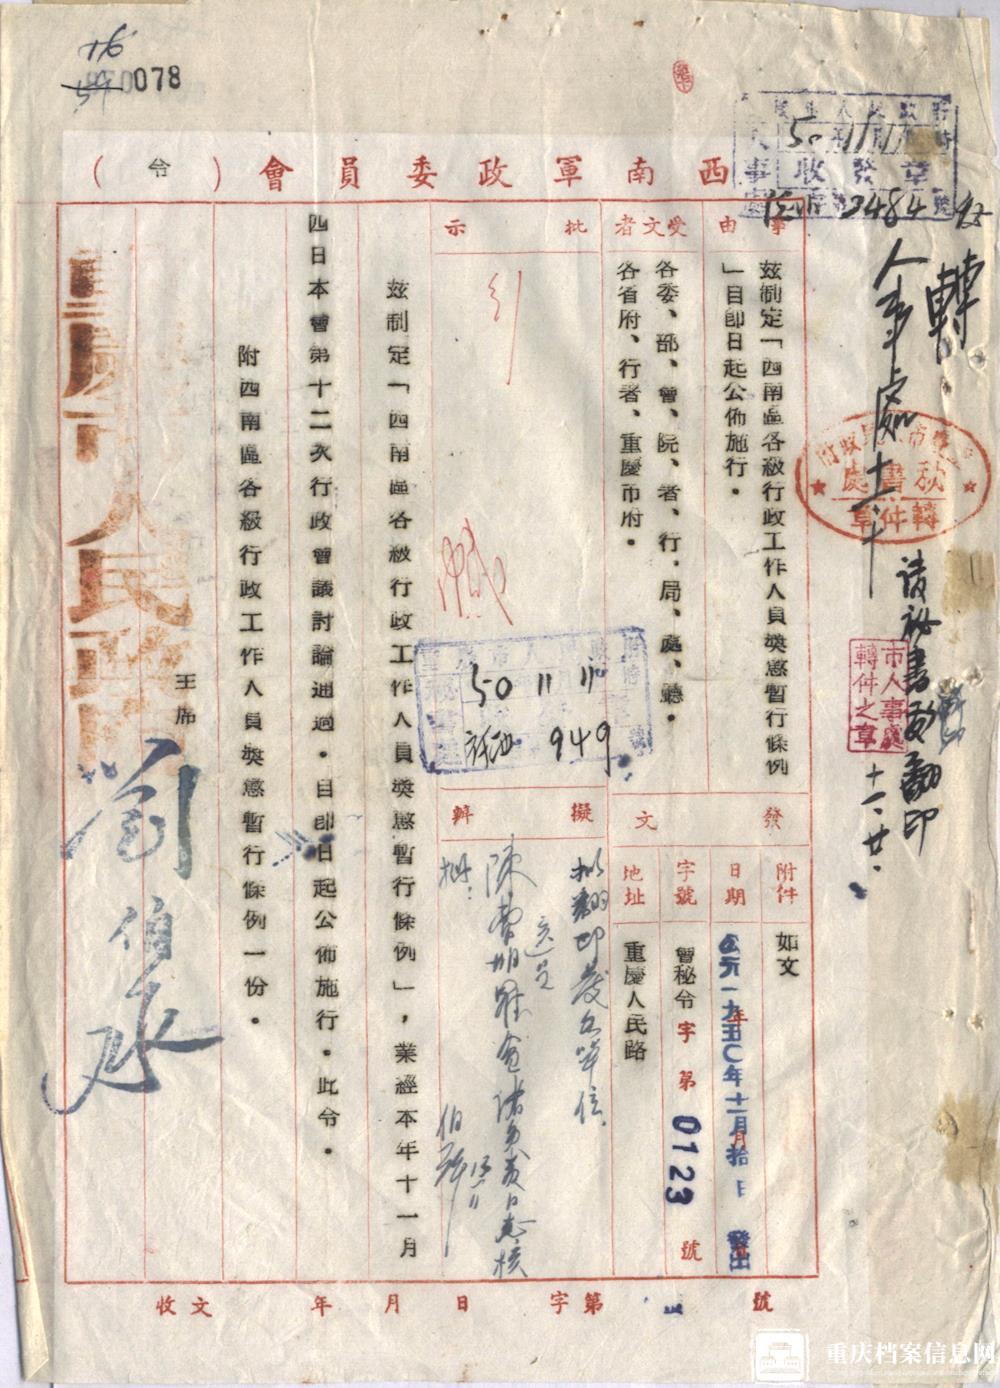 0078
西南軍政委員會（令）
事由
茲制定「西南區各級行政工作人員獎懲暫行條例
」自即日起公佈施行。
受文者
各委、部、會、院、者、行、局、處、廳。
各省府、行者、重慶市府。
批示
發文
附件
如文
日期
公元一九五〇年十一月拾日發出
字號
會秘令字第0123號
地址
重慶人民路
擬辦
擬翻印發各單位
茲制定「西南區各級行政工作人員獎懲暫行條例」，業經本年十一月
四日本會第十二次行政會議討論通過。自即日起公佈施行。此令。
附西南區各級行政工作人員獎懲暫行條例一份。
主席
劉伯承
重慶市人民政府
收發章
50 11 11
2484
轉
人事處
秘書處
轉件章
請秘書處翻印
十一、廿、
市人事處
轉件之章
50 11 11
949
收文 年 月 日 字第 號
重庆档案信息网